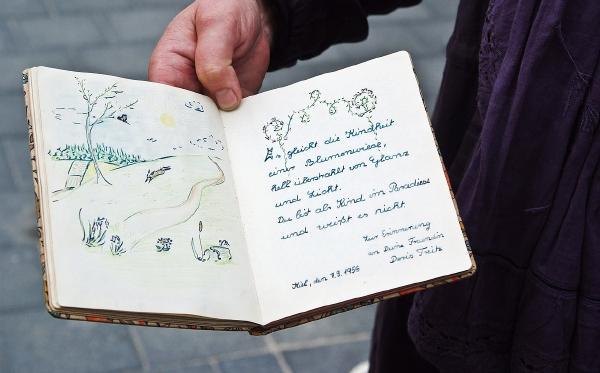 Es gleicht die Kindheit
einer Blumenwiese,
hell überstrahlt von Glanz
und Licht.
Du bist als Kind im Paradiese
und weißt es nicht.
Zur Erinnerung
an Deine Freundin
Doris
Kiel, den 7.3.1956